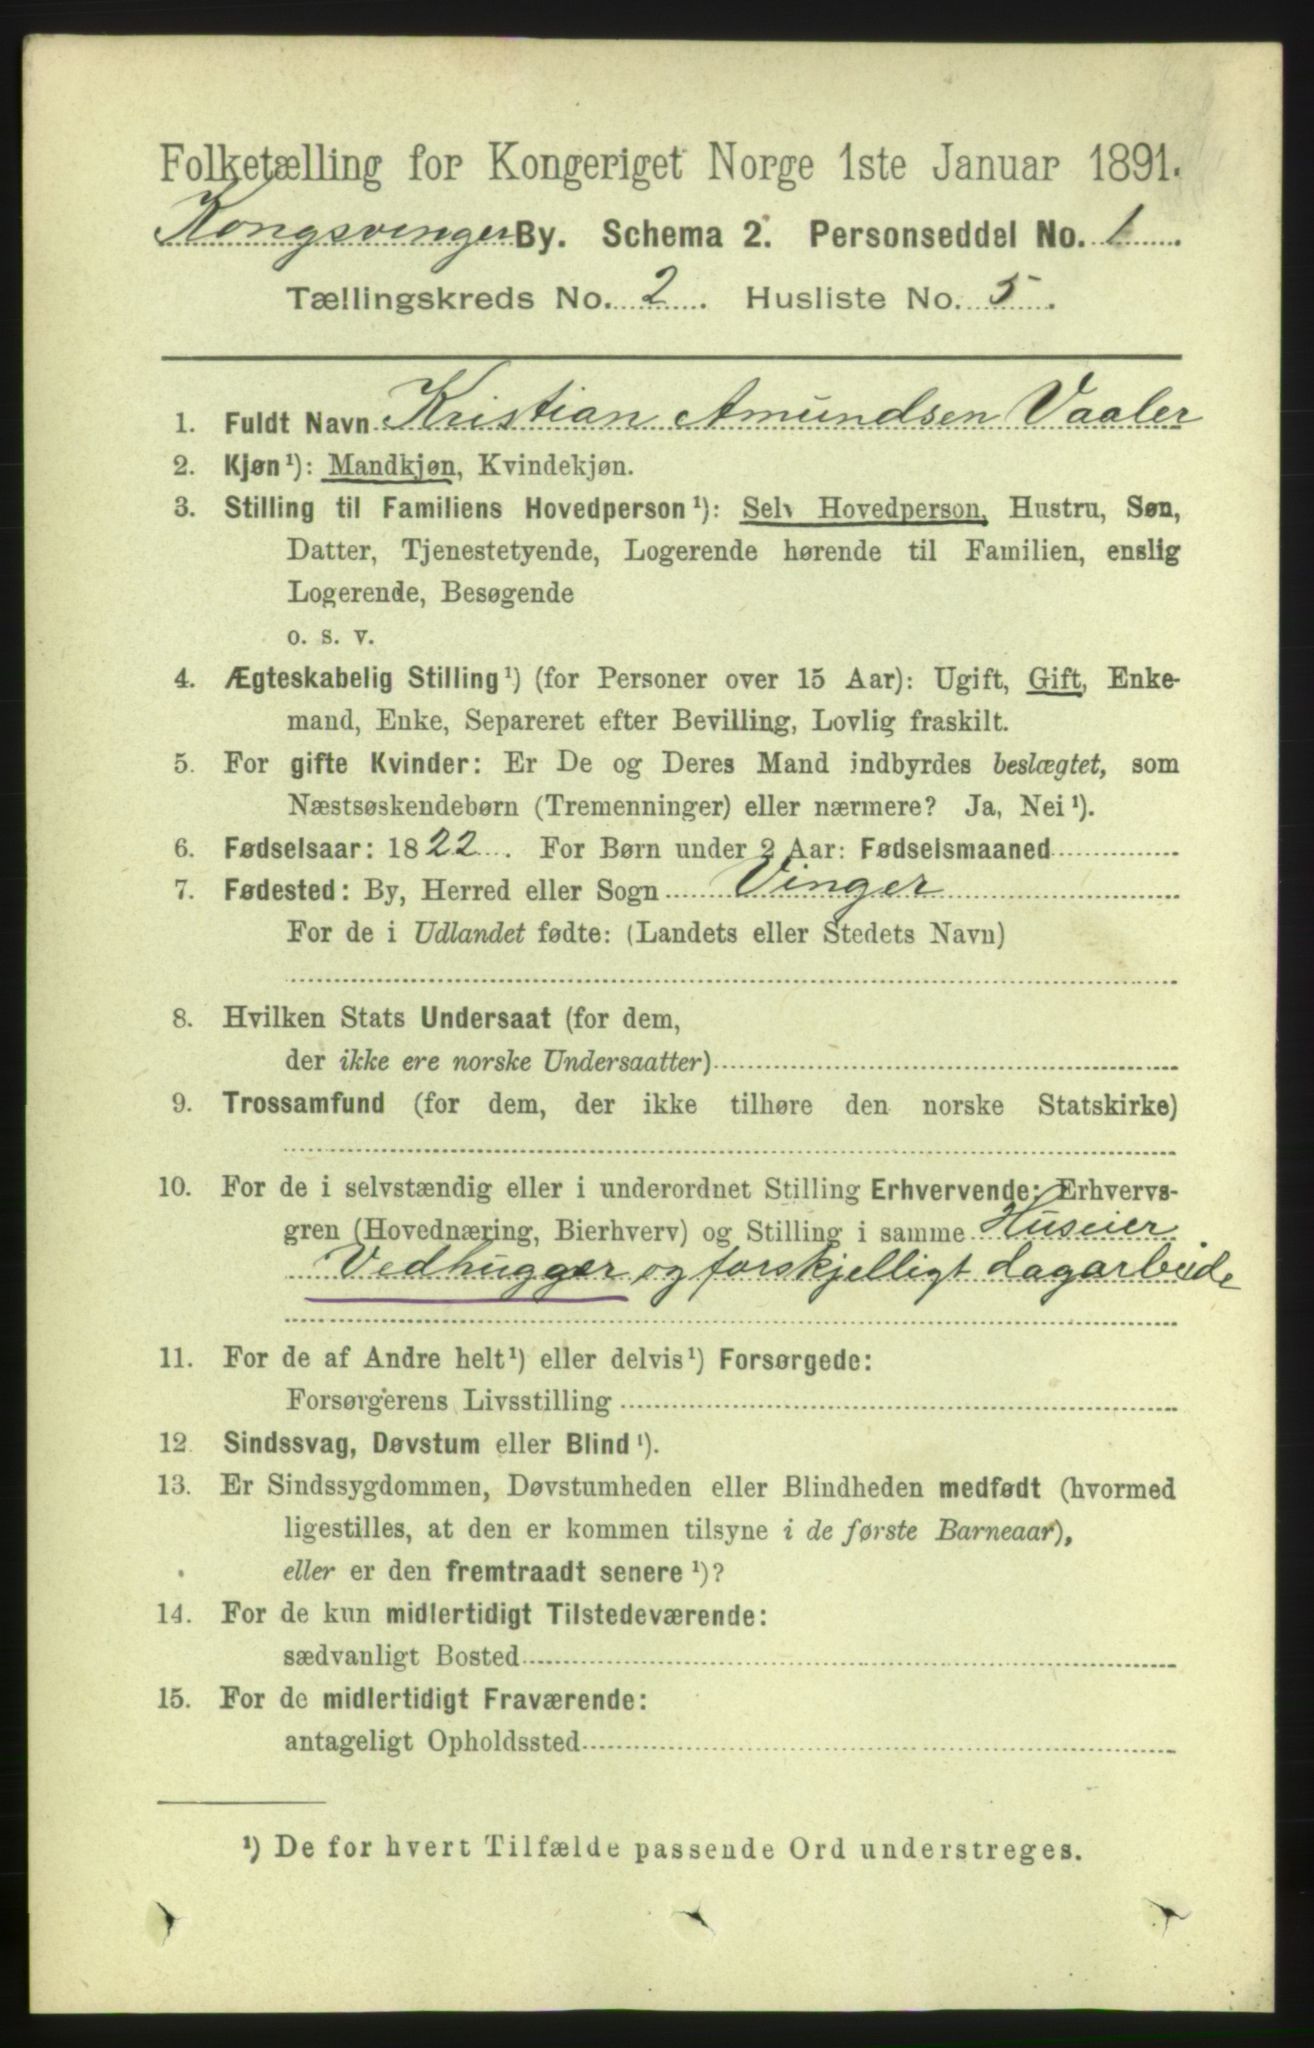 Folketælling for Kongeriget Norge 1ste Januar 1891.
Kongsvinger By. Schema 2. Personseddel No. 1
Tællingskreds No. 2. Husliste No. 5.
1. Fuldt Navn Kristian Amundsen Vaaler
2. Kjøn¹): Mandkjøn, Kvindekjøn.
3. Stilling til Familiens Hovedperson¹): Selv Hovedperson, Hustru, Søn,
Datter, Tjenestetyende, Logerende hørende til Familien, enslig
Logerende, Besøgende
o. s. v.
4. Ægteskabelig Stilling¹) (for Personer over 15 Aar): Ugift, Gift, Enke-
mand, Enke, Separeret efter Bevilling, Lovlig fraskilt.
5. For gifte Kvinder: Er De og Deres Mand indbyrdes beslægtet, som
Næstsøskendebørn (Tremenninger) eller nærmere? Ja, Nei¹).
6. Fødselsaar: 1822. For Børn under 2 Aar: Fødselsmaaned
7. Fødested: By, Herred eller Sogn Vinger
For de i Udlandet fødte: (Landets eller Stedets Navn)
8. Hvilken Stats Undersaat (for dem,
der ikke ere norske Undersaatter)
9. Trossamfund (for dem, der ikke tilhøre den norske Statskirke)
10. For de i selvstændig eller i underordnet Stilling Erhvervende: Erhvervs-
gren (Hovednæring, Bierhverv) og Stilling i samme Huseier
Vedhugger og forskjelligt dagarbeide
11. For de af Andre helt¹) eller delvis¹) Forsørgede:
Forsørgerens Livsstilling
12. Sindssvag, Døvstum eller Blind¹).
13. Er Sindssygdommen, Døvstumheden eller Blindheden medfødt (hvormed
ligestilles, at den er kommen tilsyne i de første Barneaar),
eller er den fremtraadt senere¹)?
14. For de kun midlertidigt Tilstedeværende:
sædvanligt Bosted
15. For de midlertidigt Fraværende:
antageligt Opholdssted
¹) De for hvert Tilfælde passende Ord understreges.